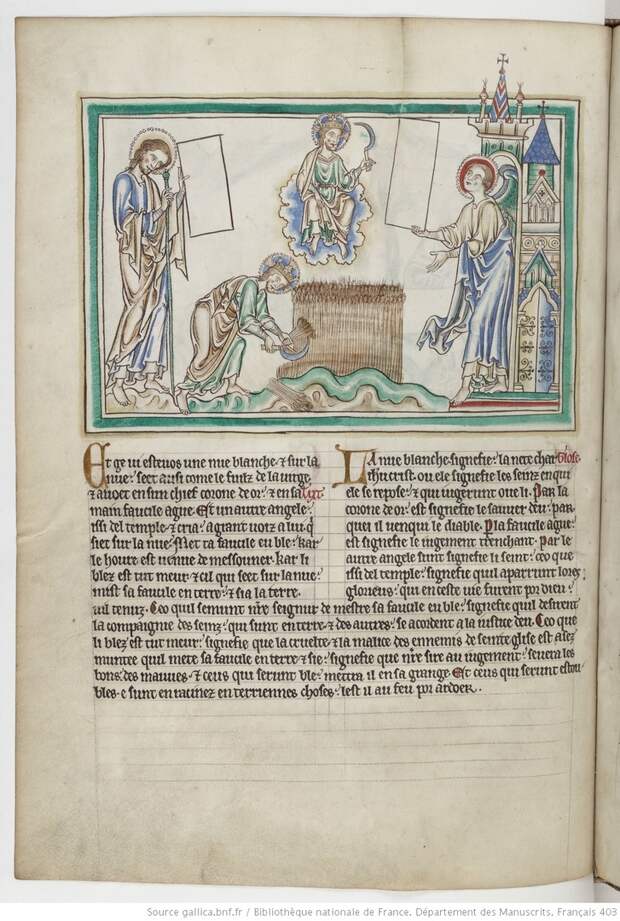 Et ge ui estuos une nue blanche · & sur la
nue · seet ausi come le fuilz de la uirge ·
& auoet en sun chief corone de or · & en sa
main faucile ague · Est un autre angele ·
issi del temple · & cria · a grant uoiz a lui q
siet sur la nue · Met ta faucile en ble · kar
le houre est uenue de messouner · kar li
blez est tut meur · & cil qui seet sur la nue ·
mist sa faucile en terre · & sia la terre ·
LA nue blanche · signefie · la nete char Glose
ihu crist · ou ele signefie les seinz en qui
ele se repose · & qui uigerunt o li · Par la
corone de or · est signefie le sauuer deu · par
quei il uenqui le diable · P la faucile ague
est signefie le iugement trenchant · Par le
autre angele sunt signefie li seint · Ceo que
issi del temple · signefie quil aparrunt lores
glorieus · qui en ceste uie furent por dieu ·
au tenuz · Ceo quil semunt nre seignur de mestre sa faucile en ble · signefie quil desirent
la compaignie des seinz · qui sunt en terre · & des autres · se acordent a la iustise deu · Ceo que
li blez est tut meur · signefie que la cruelte · & la malice des ennemis de seinte glise est a lez
muntee quil mete sa faucile en terre & sie · signefie que nre sire au iugement · seuera les
bons · des mauues · & ceus qui serunt ble · mettra il en sa grange · Et ceus qui serunt estou
bles · e sunt enracinez en terriennes choses · iest il au feu pr ardoer ·
Source gallica.bnf.fr / Bibliothèque nationale de France. Département des Manuscrits. Français 403